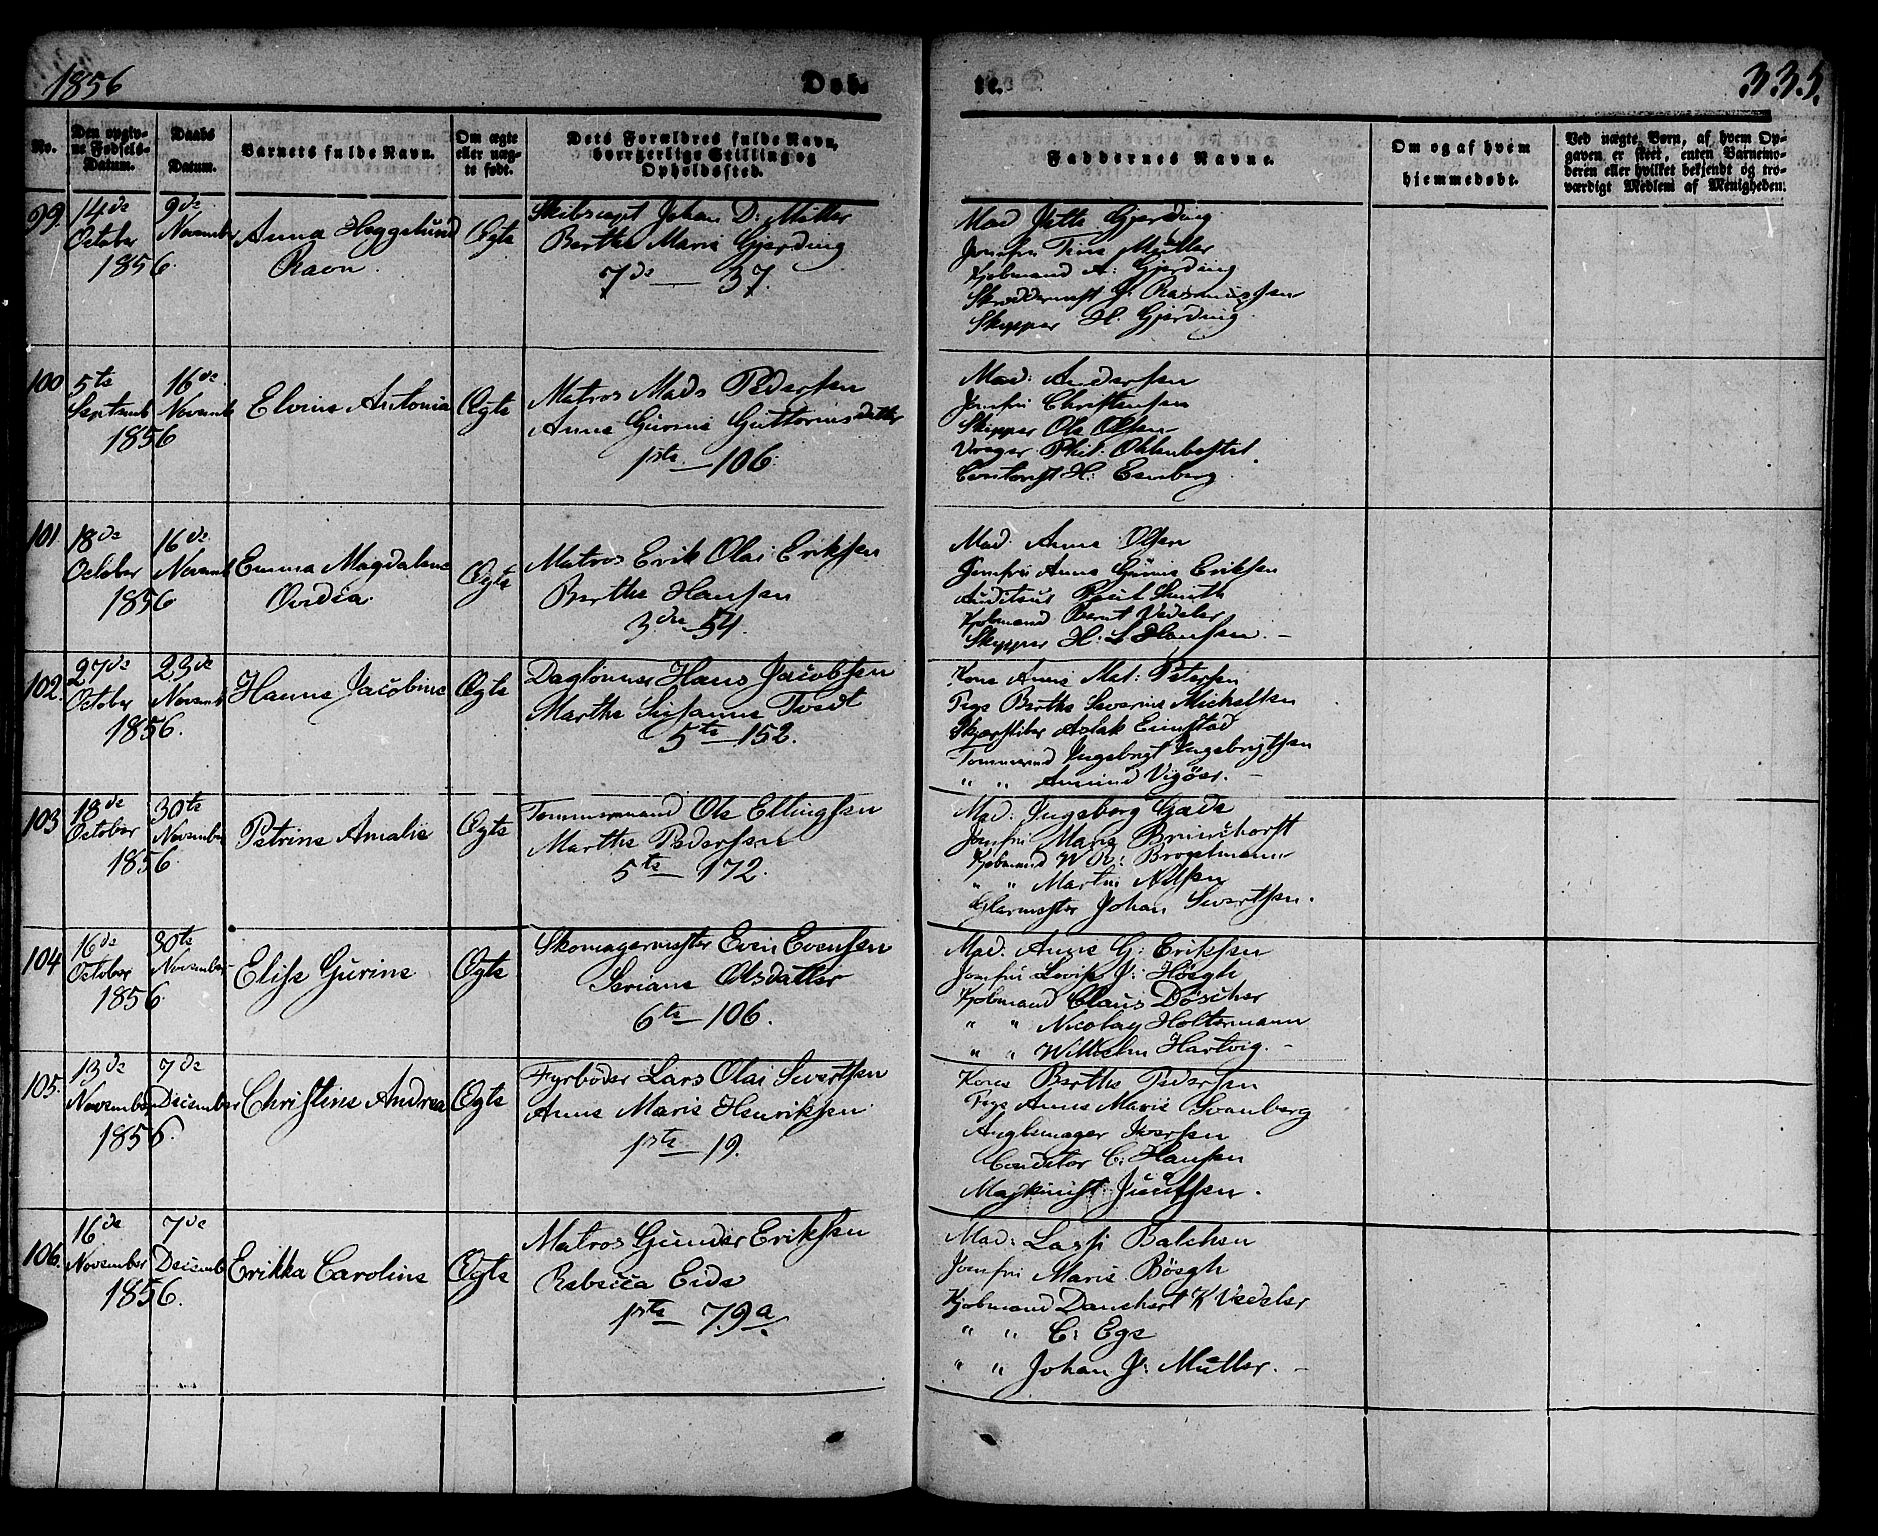 1856
Døb-
te.
335.
No.
Den opgiv-
ne Fødsels-
Datum.
Daabs
Datum.
Barnets fulde Navn.
Om ægte
eller uæg-
te født.
Dets Forældres fulde Navn,
borgerlige Stilling og
Opholdssted.
Faddernes Navne.
Om og af hvem
hjemmedøbt.
Ved uægte Børn, af hvem Op-
gaven er skeet, enten Barnemo-
deren eller hvilket bekjendt og tro-
værdigt Medlem af Menigheden.
99.
14de
October
1856.
9de
November
Anna Heggelund
Ravn.
Ægte
Skibscapt Johan D: Müller
Berthe Marie Gjerding
7de — 37.
Mad Jette Gjerding
Jomfru Tine Müller
Kjobmand A: Gjerding
Skræddermst J: Rasmussen
Skipper H. Gjerding.
100
5te
Septemb
1856
16de
Novemb
Elvine Antonia
Ægte
Matros Mads Pedersen
Anne Gurine Guttormsdatter
1ste — 106.
Mad: Andersen
Jomfru Christensen
Skipper Ole Olsen
Vrager Phil: Ohlenbostel.
Contorist H: Esmberg.
101
18de
October
1856
16de
Novemb
Emma Magdalene
Ovidia.
Ægte
Matros Erik Olai Eriksen
Berthe Hansen
3die 54.
Mad. Anne Olsen
Jomfru Anne Gurine Eriksen
Auditeur Poul Smith
Kjobmand Bernt Vedeler
Skipper H: L Hansen. —
102.
27de
October
1856.
23de
Novemb
Hanne Jacobine
Ægte
Daglønner Hans Jacobsen
Marthe Susanne Tvedt
5te — 152.
Kone Anne Mat: Petersen
Pige Berthe Severine Michelsen
Skjærsliber Aslak Eimstad
Tommermd Ingebrigt Ingebrigtsen
" " Amund Vigøer. —
103
18de
October
1856.
30te
November
Petrine Amalie
Ægte
Tommermand Ole Ellingsen
Marthe Pedersen
5te — 172.
Mad: Ingeborg Gade
Jomfru Marie Brunchorst
Kjobmand W R: Brøgelmann
" " Martin Nilsen
Glarmester Johan Sivertsen.
104
16de
October
1856.
30te
November
Elise Gurine
Ægte
Skomagermester Even Evensen
Seriane Olsdatter
6te — 106.
Mad. Anne G: Eriksen
Jomfru Lovise J: Høegh
Kjobmand Claus Döscher
" " Nicolay Holtermann
" " Wilhelm Hartvig. —
105.
13de
November
1856.
7de
December
Christine Andrea
Ægte
Fyrbøder Lars Olai Sivertsen
Anne Marie Henriksen
1ste — 19.
Kone Berthe Pedersen
Pige Anne Marie Svanberg
Anglemager Iversen
Conditor C: Hansen
Maskinist Juulsen.
106.
16de
November
1856.
7de
Decemb
Erikka Caroline
Ægte
Matros Gunder Eriksen
Rebecca Eide
1ste 79a.
Mad: Lassi Balchen
Jomfru Marie Bøegh
Kjobmand Danchert K Vedeler
" " C: Ege
" " Johan J: Müller. —